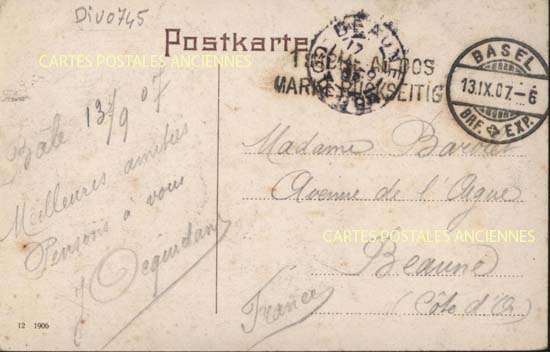 Div0745
Postkarte
BEAUNE
TIMBRE AU DOS
MARKE RÜCKSEITIG
BASEL
13.IX.07.-6
BRF. EXP.
Bale 13/9 07
Meilleures amitiés
Pensons à vous
Madame
Avenue de l'Aigue
Beaune
(Côte d'Or)
France
CARTES POSTALES ANCIENNES
CARTES POSTALES ANCIENNES
CARTES POSTALES ANCIENNES
12 1906